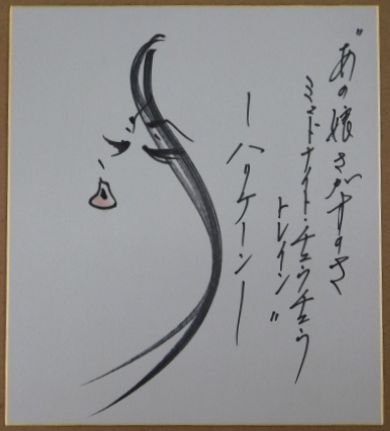 "あの娘さがすのさ
ミッドナイト・チュウチュウ
トレイン"
―ハリケーン―